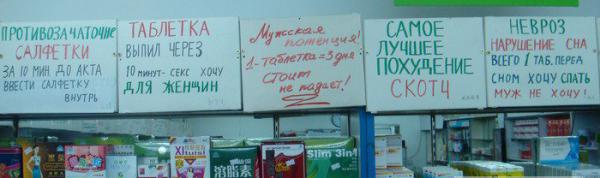 ПРОТИВОЗАЧАТОЧНЫЕ
САЛФЕТКИ
ЗА 10 МИН. ДО АКТА
ВВЕСТИ САЛФЕТКУ
ВНУТРЬ
ТАБЛЕТКА
ВЫПИЛ ЧЕРЕЗ
10 МИНУТ- СЕКС ХОЧУ
ДЛЯ ЖЕНЩИН
Мужская
потенция!
1-таблетка=3 дня
стоит
не падает!
САМОЕ
ЛУЧШЕЕ
ПОХУДЕНИЕ
СКОТЧ
НЕВРОЗ
НАРУШЕНИЕ СНА
ВСЕГО 1 ТАБ. ПЕРЕД
СНОМ ХОЧУ СПАТЬ
МУЖ НЕ ХОЧУ!
Slim 3in1
溶脂素